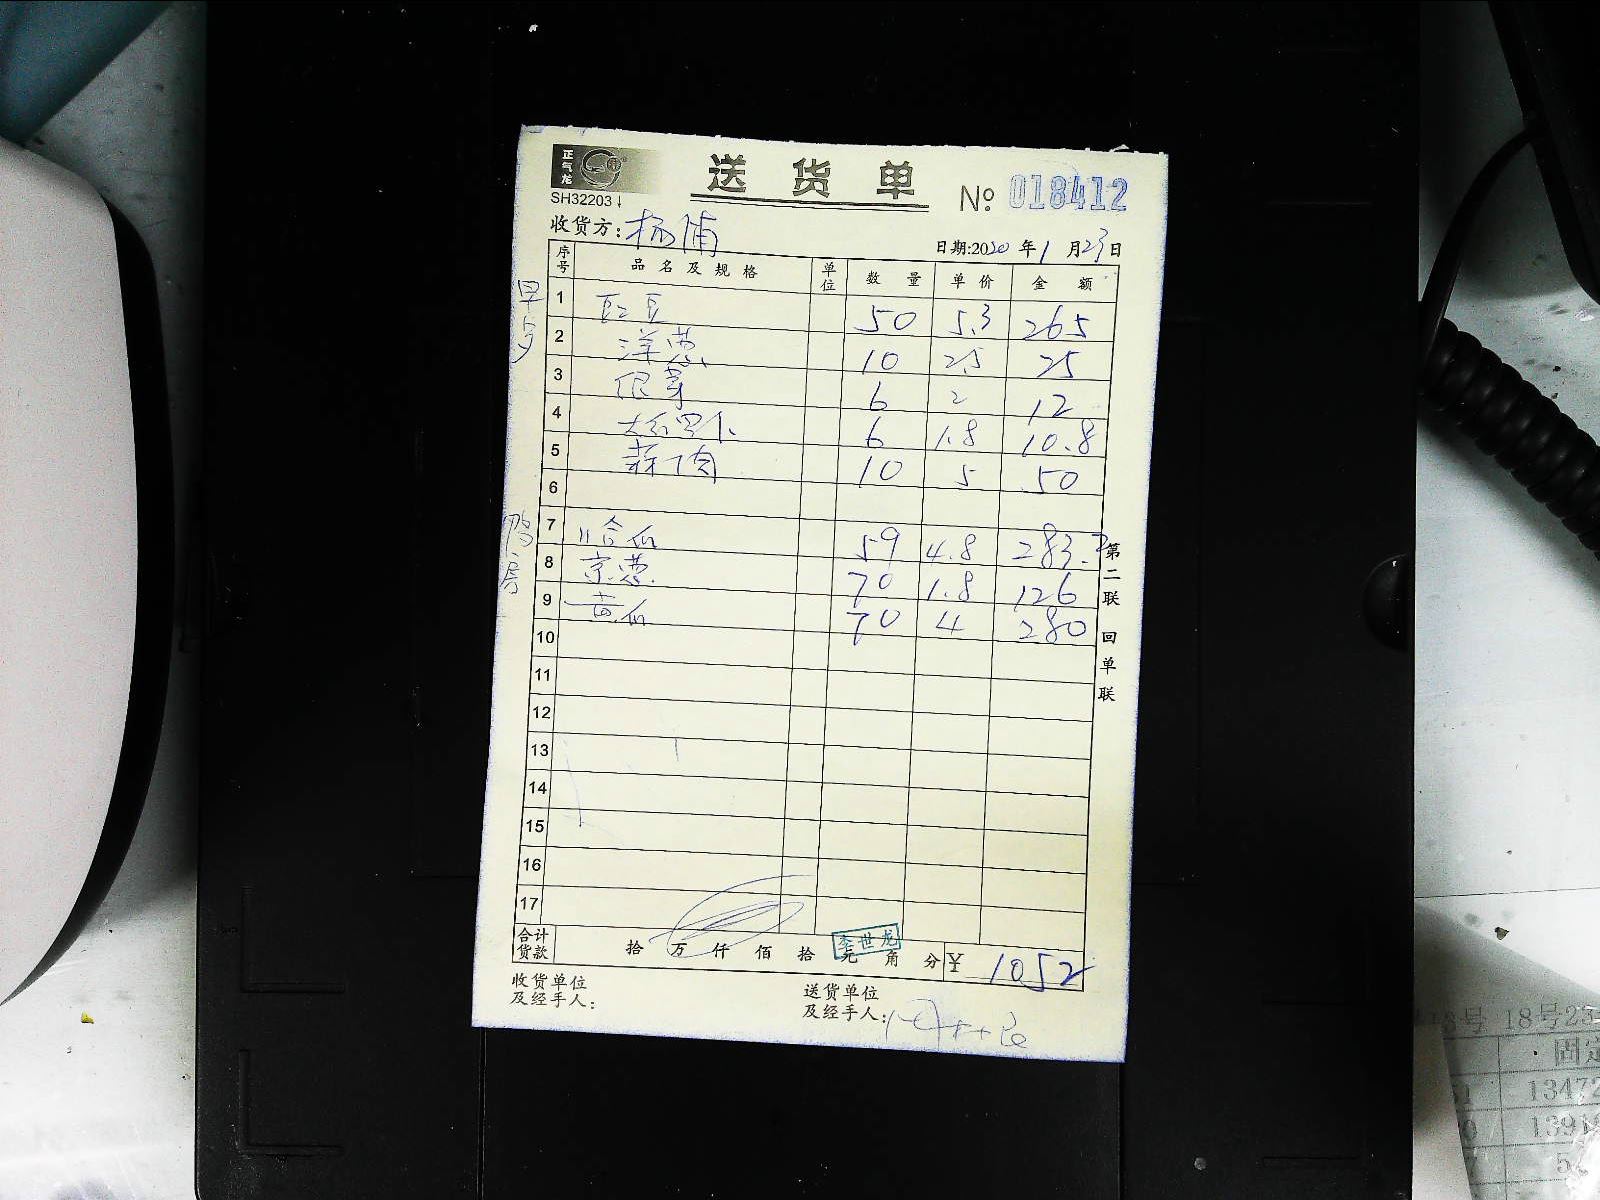 正气龙
SH32203
送货单
№ 018412
收货方: 杨浦
日期:2020 年 1 月 23 日
序号 品名及规格 单位 数量 单价 金额
早点
1 豇豆 50 5.3 265
2 洋葱 10 2.5 25
3 银芽 6 2 12
4 6 1.8 10.8
5 蒜肉 10 5 50
6
鸭房
7 哈瓜 59 4.8 283.2
8 京葱 70 1.8 126
9 黄瓜 70 4 280
10
11
12
13
14
15
16
17
第二联 回单联
合计货款 拾 万 仟 佰 拾 元 角 分 ¥ 1052
李世龙
收货单位及经手人:
送货单位及经手人:
18号 23
固定
13472